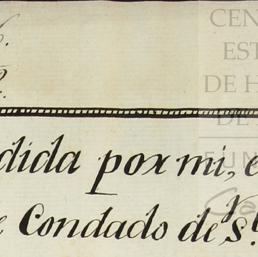 CEN
EST
DE H
DE
FUN
dida por mi, e
e Condado de S.